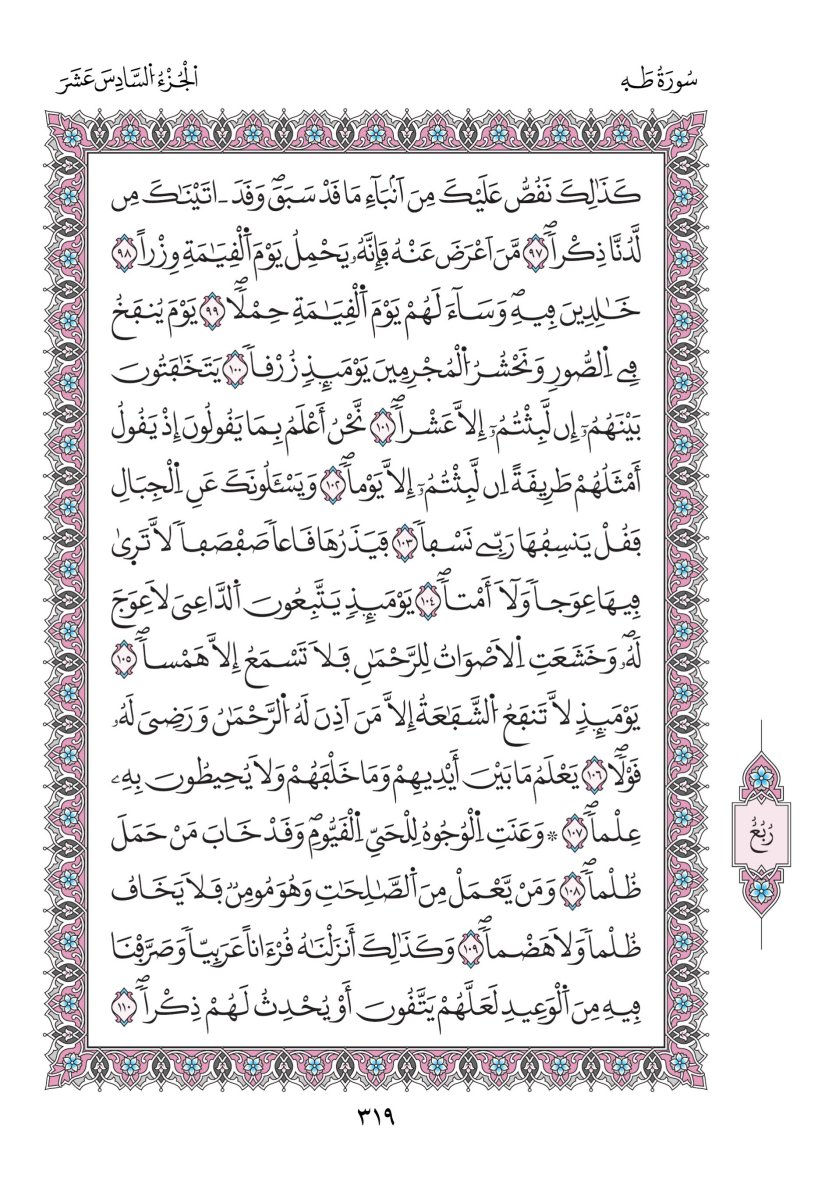 سُورَةُ طَهَ
اَلْجُزْءُ السَّادِسَ عَشَرَ
كَذَٰلِكَ نَقُصُّ عَلَيْكَ مِنَ اَنۢبَآءِ مَا قَدْ سَبَقَۖ وَقَدَ ـ اتَيْنَٰكَ مِن
لَّدُنَّا ذِكْراٗۖ ٩٧ مَّنَ اَعْرَضَ عَنْهُ فَإِنَّهُۥ يَحْمِلُ يَوْمَ اَلْقِيَٰمَةِ وِزْراً ٩٨
خَٰلِدِينَ فِيهِۖ وَسَآءَ لَهُمْ يَوْمَ اَلْقِيَٰمَةِ حِمْلاٗۖ ٩٩ يَوْمَ يُنفَخُ
فِے اِلصُّورِ وَنَحْشُرُ اُلْمُجْرِمِينَ يَوْمَئِذٖ زُرْقاٗ ١٠٠ يَتَخَٰفَتُونَ
بَيْنَهُمُۥٓ إِن لَّبِثْتُمُۥٓ إِلَّا عَشْراٗۖ ١٠١ نَّحْنُ أَعْلَمُ بِمَا يَقُولُونَ إِذْ يَقُولُ
أَمْثَلُهُمْ طَرِيقَةً اِن لَّبِثْتُمُۥٓ إِلَّا يَوْماٗۖ ١٠٢ وَيَسْـَٔلُونَكَ عَنِ اِلْجِبَالِ
فَقُلْ يَنسِفُهَا رَبِّے نَسْفاٗ ١٠٣ فَيَذَرُهَا قَاعاٗ صَفْصَفاٗ لَّا تَرَىٰ
فِيهَا عِوَجاٗ وَلَآ أَمْتاٗۖ ١٠٤ يَوْمَئِذٖ يَتَّبِعُونَ اَلدَّاعِيَ لَا عِوَجَ
لَهُۥۖ وَخَشَعَتِ اِلَاصْوَاتُ لِلرَّحْمَٰنِ فَلَا تَسْمَعُ إِلَّا هَمْساٗۖ ١٠٥
يَوْمَئِذٖ لَّا تَنفَعُ اُلشَّفَٰعَةُ إِلَّا مَنَ اَذِنَ لَهُ اُلرَّحْمَٰنُ وَرَضِيَ لَهُۥ
قَوْلاٗۖ ١٠٦ يَعْلَمُ مَا بَيْنَ أَيْدِيهِمْ وَمَا خَلْفَهُمْ وَلَا يُحِيطُونَ بِهِۦ
عِلْماٗۖ ١٠٧ ۞ وَعَنَتِ اِلْوُجُوهُ لِلْحَيِّ اِلْقَيُّومِۖ وَقَدْ خَابَ مَنْ حَمَلَ
ظُلْماٗۖ ١٠٨ وَمَنْ يَّعْمَلْ مِنَ اَلصَّٰلِحَٰتِ وَهُوَ مُومِنٞ فَلَا يَخَافُ
ظُلْماٗ وَلَا هَضْماٗۖ ١٠٩ وَكَذَٰلِكَ أَنزَلْنَٰهُ قُرْءَاناً عَرَبِيّاٗ وَصَرَّفْنَا
فِيهِ مِنَ اَلْوَعِيدِ لَعَلَّهُمْ يَتَّقُونَ أَوْ يُحْدِثُ لَهُمْ ذِكْراٗۖ ١١٠
رُبُعُ
٣١٩